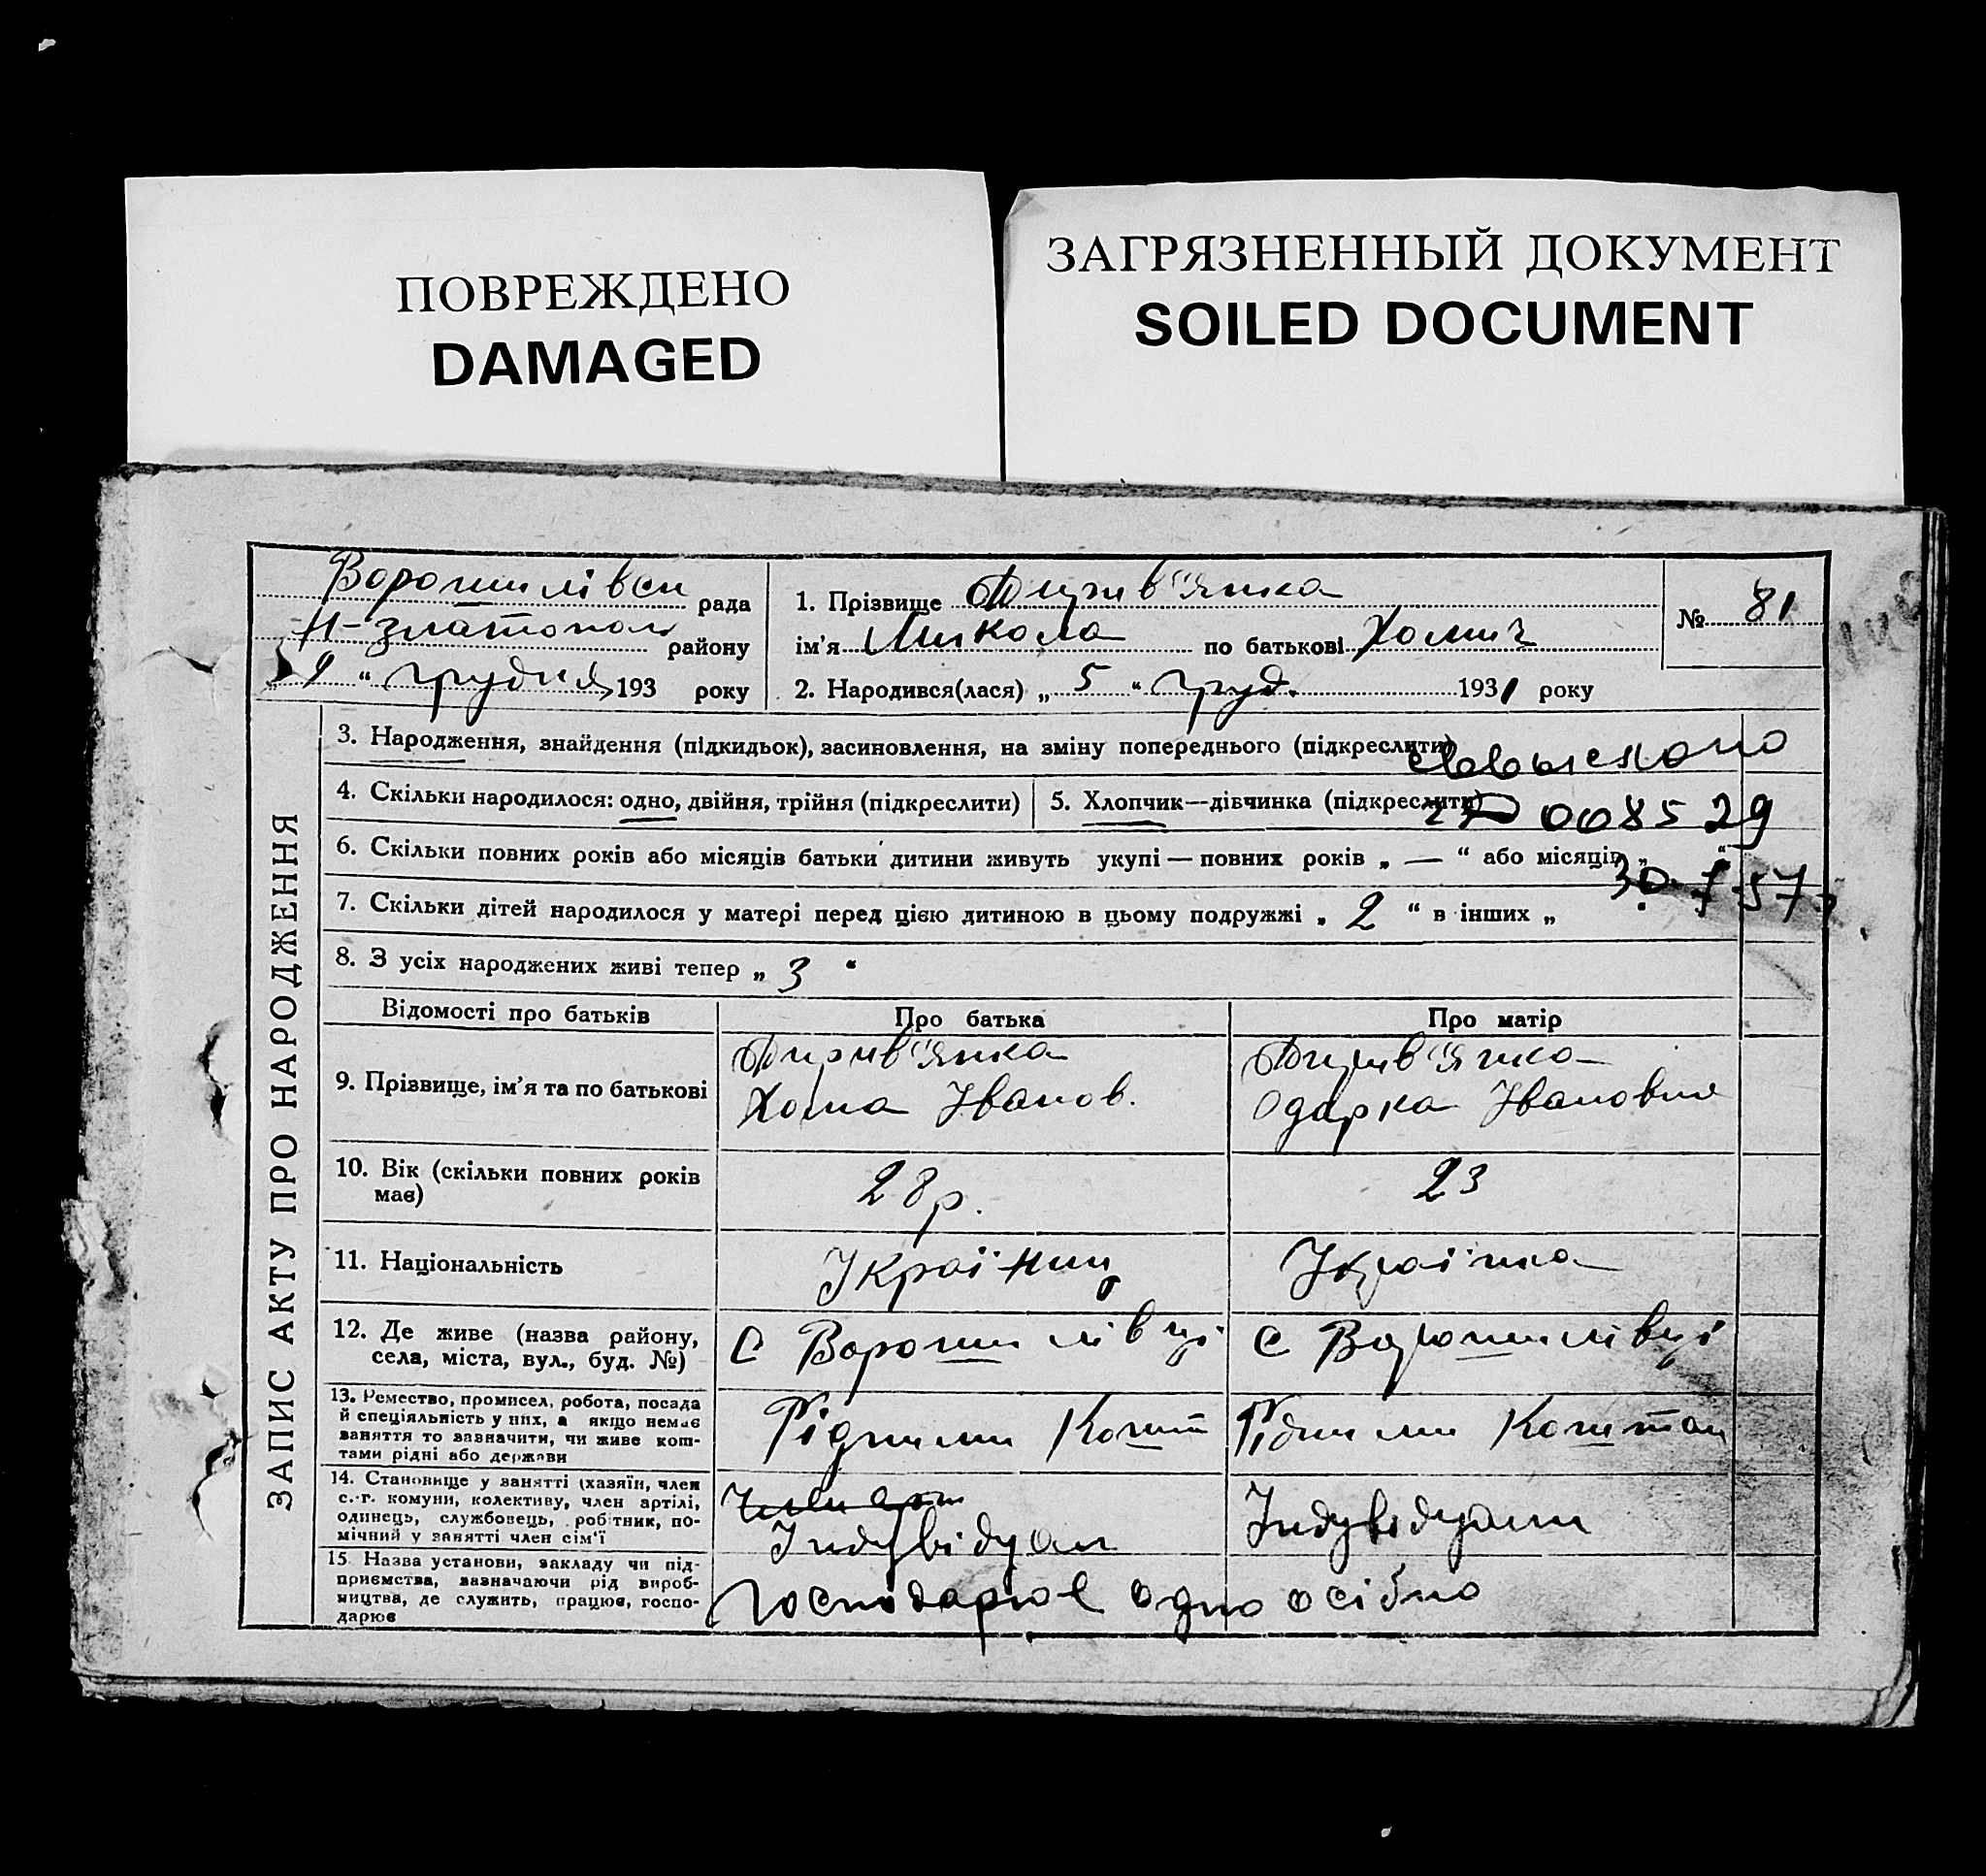 ПОВРЕЖДЕНО
DAMAGED
ЗАГРЯЗНЕННЫЙ ДОКУМЕНТ
SOILED DOCUMENT
Ворошилівськ рада
Н-златопол району
„ 9 “ грудня 193 року
1. Прізвище Дирив'янка
ім'я Микола по батькові Хомич
№ 81
2. Народився(лася) „ 5 “ груд. 1931 року
ЗАПИС АКТУ ПРО НАРОДЖЕННЯ
3. Народження, знайдення (підкидьок), засиновлення, на зміну попереднього (підкреслити)
4. Скільки народилося: одно, двійня, трійня (підкреслити)
5. Хлопчик—дівчинка (підкреслити)
008529
6. Скільки повних років або місяців батьки дитини живуть укупі — повних років „ — “ або місяців „ “
30.7.57
7. Скільки дітей народилося у матері перед цією дитиною в цьому подружжі „ 2 “ в інших „
8. З усіх народжених живі тепер „ 3 “
Відомості про батьків Про батька Про матір
9. Прізвище, ім'я та по батькові
Дирив'янка
Хома Іванов.
Дирив'янка
Одарка Івановна
10. Вік (скільки повних років має)
28 р.
23
11. Національність
Українец
Українка
12. Де живе (назва району, села, міста, вул., буд. №)
С Ворошилівці
С Ворошилівці
13. Ремество, промисел, робота, посада
й спеціяльність у них, а якщо немає
заняття то зазначити, чи живе кош-
тами рідні або держави
Рідними Кошт
Рідними Коштам
14. Становище у занятті (хазяїн, член
с.-г. комуни, колективу, член артілі,
одинець, службовець, робітник, по-
мічний у занятті член сім'ї
Член арт
Індувідуал
Індувідуалн
15. Назва установи, закладу чи під-
приємства, зазначаючи рід вироб-
ництва, де служить, працює, госпо-
дарює
Господарює одноосібно